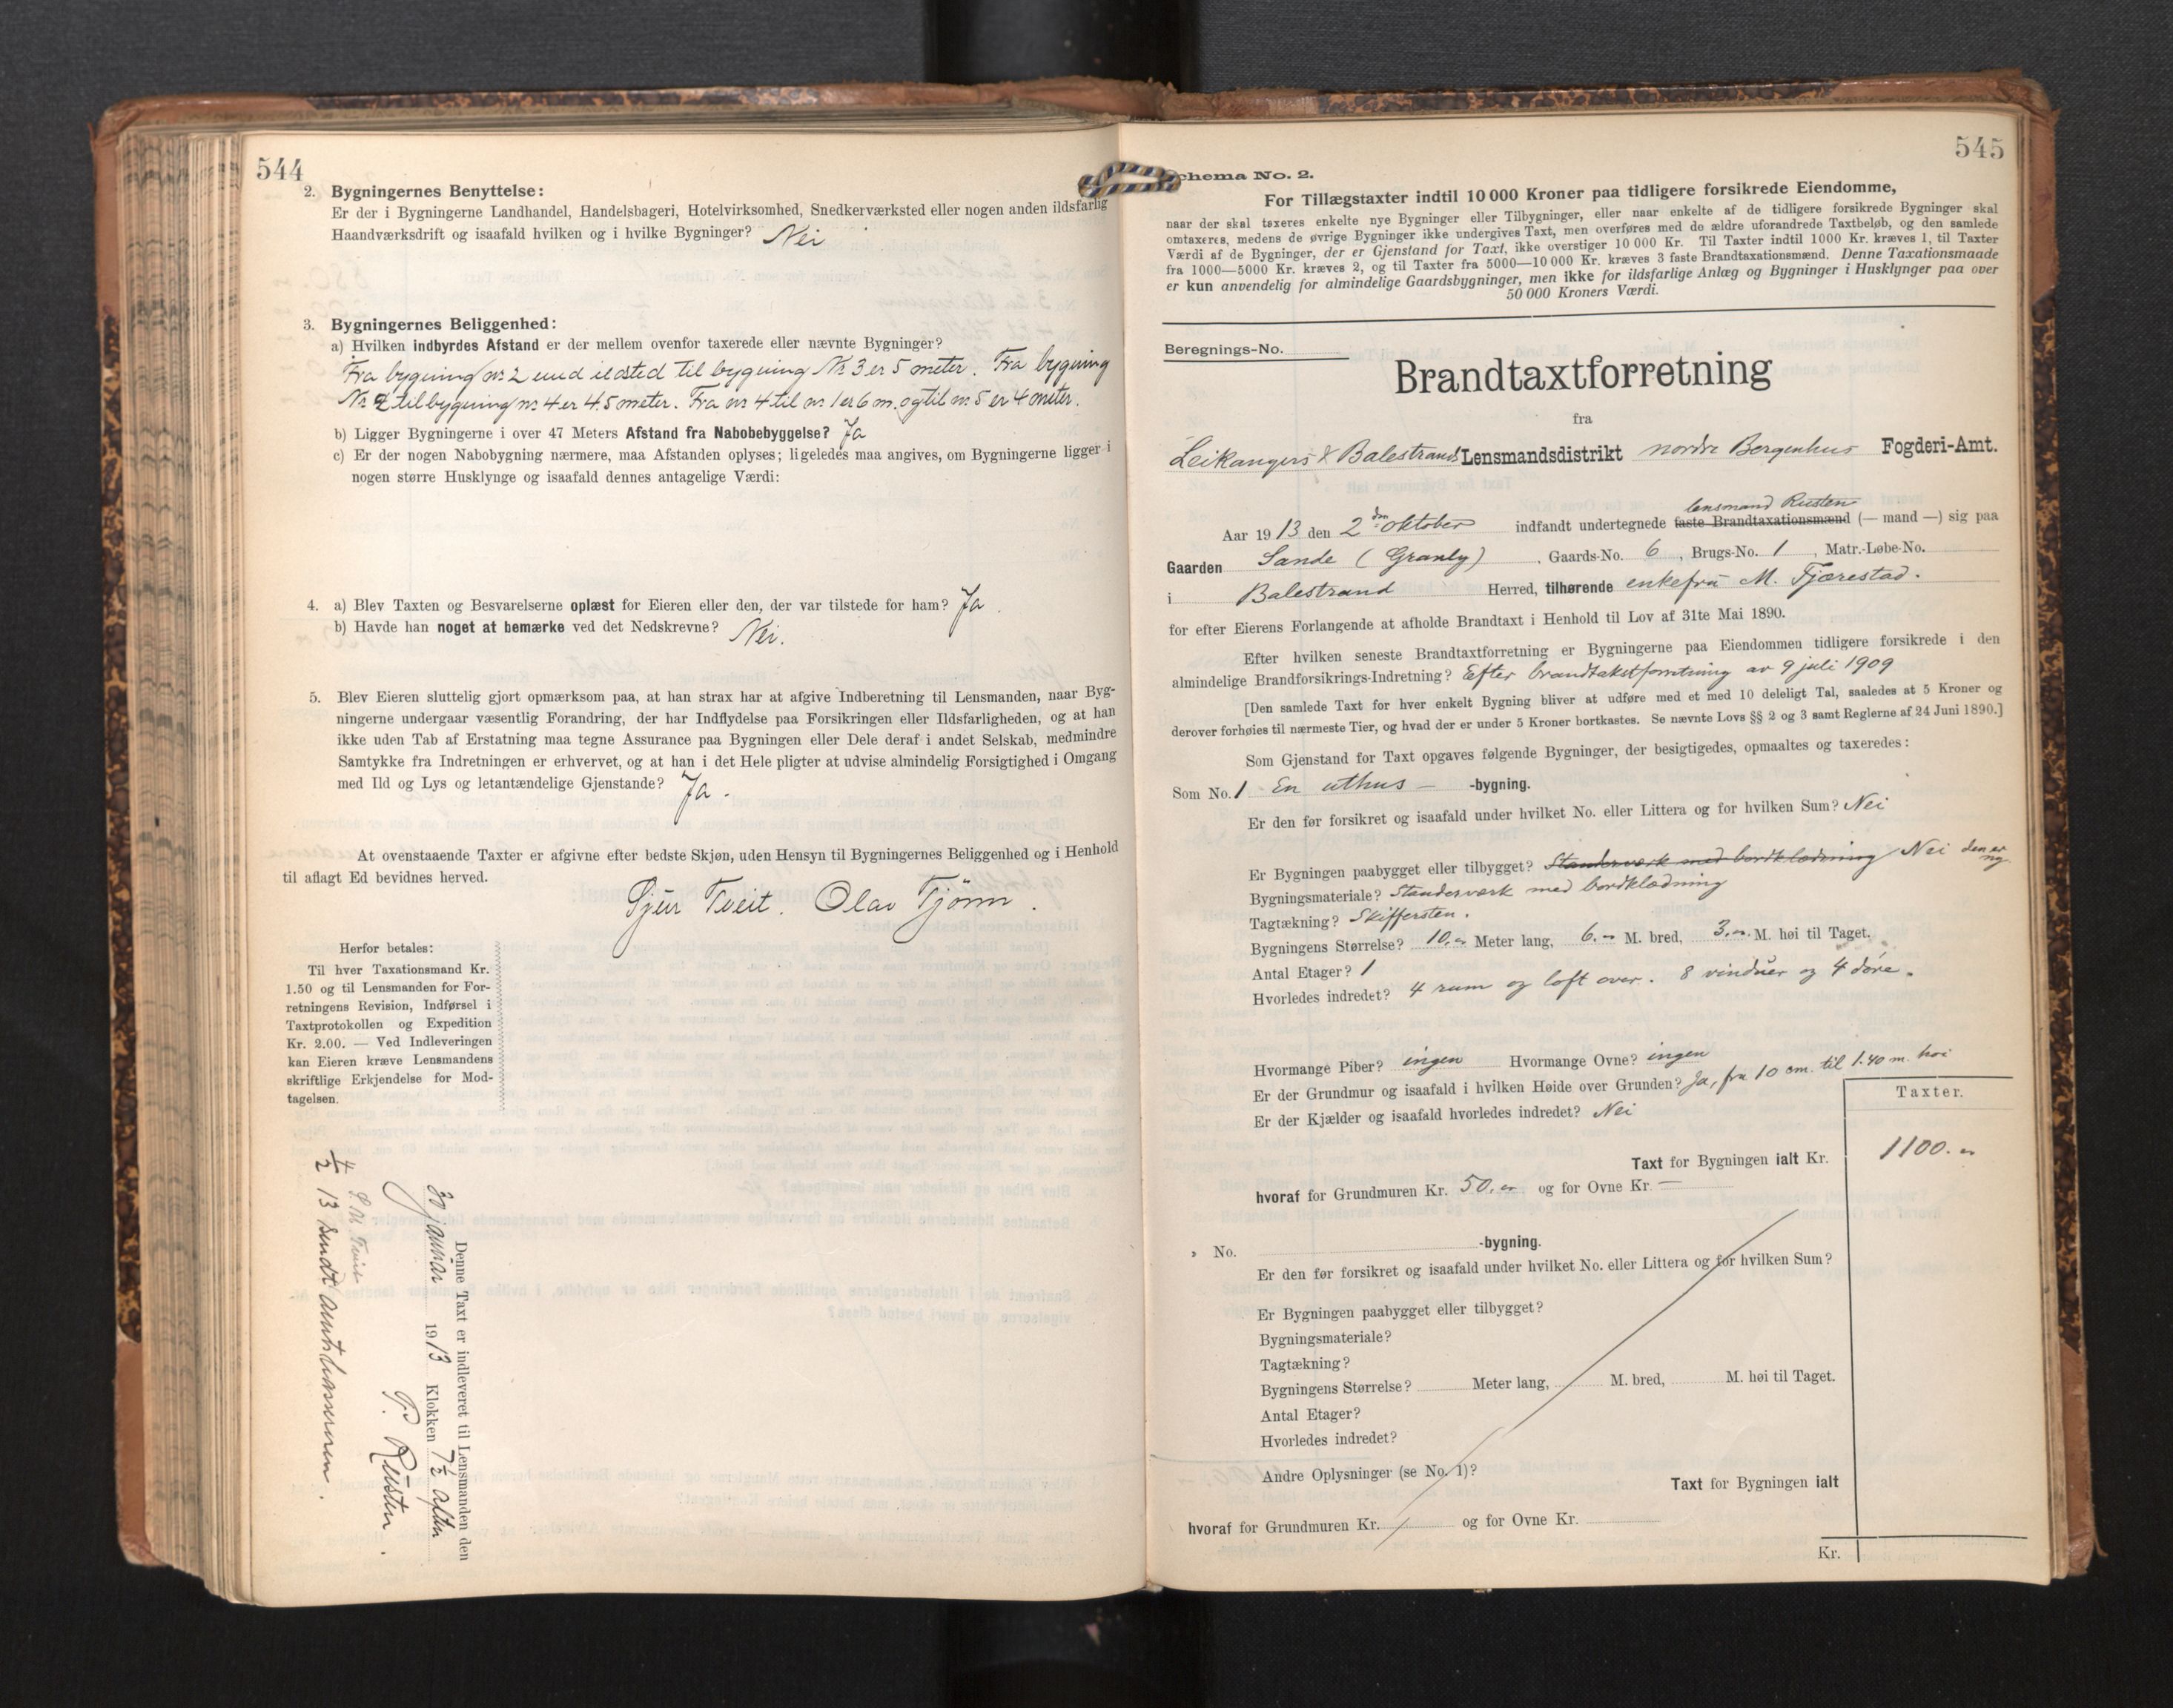 544
2. Bygningernes Benyttelse:
Er der i Bygningerne Landhandel, Handelsbageri, Hotelvirksomhed, Snedkerværksted eller nogen anden ildsfarlig
Haandværksdrift og isaafald hvilken og i hvilke Bygninger? Nei
3. Bygningernes Beliggenhed:
a) Hvilken indbyrdes Afstand er der mellem ovenfor taxerede eller nævnte Bygninger?
Fra bygning nr 2 med ildsted til bygning Nr 3 er 5 meter. Fra bygning
Nr 2 til bygning nr 4 er 4.5 meter. Fra nr 4 til nr 1 er 6 m. og til nr 5 er 4 meter.
b) Ligger Bygningerne i over 47 Meters Afstand fra Nabobebyggelse? Ja
c) Er der nogen Nabobygning nærmere, maa Afstanden oplyses; ligeledes maa angives, om Bygningerne ligger i
nogen større Husklynge og isaafald dennes antagelige Værdi:
4. a) Blev Taxten og Besvarelserne oplæst for Eieren eller den, der var tilstede for ham? Ja.
b) Havde han noget at bemærke ved det Nedskrevne? Nei.
5. Blev Eieren sluttelig gjort opmærksom paa, at han strax har at afgive Indberetning til Lensmanden, naar Byg-
ningerne undergaar væsentlig Forandring, der har Indflydelse paa Forsikringen eller Ildsfarligheden, og at han
ikke uden Tab af Erstatning maa tegne Assurance paa Bygningen eller Dele deraf i andet Selskab, medmindre
Samtykke fra Indretningen er erhvervet, og at han i det Hele pligter at udvise almindelig Forsigtighed i Omgang
med Ild og Lys og letantændelige Gjenstande? Ja.
At ovenstaaende Taxter er afgivne efter bedste Skjøn, uden Hensyn til Bygningernes Beliggenhed og i Henhold
til aflagt Ed bevidnes herved.
Sjur Tveit. Olav Tjønn.
Herfor betales:
Til hver Taxationsmand Kr.
1.50 og til Lensmanden for For-
retningens Revision, Indførsel i
Taxtprotokollen og Expedition
Kr. 2.00. — Ved Indleveringen
kan Eieren kræve Lensmandens
skriftlige Erkjendelse for Mod-
tagelsen.
Denne Taxt er indleveret til Lensmanden den
30 januar 1913 Klokken 7½ aften
P. Rusten.
4/2 13 sendt amtskassereren.
545
Schema No. 2.
For Tillægstaxter indtil 10 000 Kroner paa tidligere forsikrede Eiendomme,
naar der skal taxeres enkelte nye Bygninger eller Tilbygninger, eller naar enkelte af de tidligere forsikrede Bygninger skal
omtaxeres, medens de øvrige Bygninger ikke undergives Taxt, men overføres med de ældre uforandrede Taxtbeløb, og den samlede
Værdi af de Bygninger, der er Gjenstand for Taxt, ikke overstiger 10 000 Kr. Til Taxter indtil 1000 Kr. kræves 1, til Taxter
fra 1000—5000 Kr. kræves 2, og til Taxter fra 5000—10 000 Kr. kræves 3 faste Brandtaxationsmænd. Denne Taxationsmaade
er kun anvendelig for almindelige Gaardsbygninger, men ikke for ildsfarlige Anlæg og Bygninger i Husklynger paa over
50 000 Kroners Værdi.
Beregnings-No.
Brandtaxtforretning
fra
Leikangers & Balestrands Lensmandsdistrikt nordre Bergenhus Fogderi-Amt.
lensmand Rusten
Aar 1913 den 2den oktober indfandt undertegnede faste Brandtaxationsmænd (— mand —) sig paa
Gaarden Sande (Granly), Gaards-No. 6, Brugs-No. 1, Matr.-Løbe-No.
i Balestrand Herred, tilhørende enkefru M. Tjærestad.
for efter Eierens Forlangende at afholde Brandtaxt i Henhold til Lov af 31te Mai 1890.
Efter hvilken seneste Brandtaxtforretning er Bygningerne paa Eiendommen tidligere forsikrede i den
almindelige Brandforsikrings-Indretning? Efter brandtakstforretning av 9 juli 1909
[Den samlede Taxt for hver enkelt Bygning bliver at udføre med et med 10 deleligt Tal, saaledes at 5 Kroner og
derover forhøies til nærmeste Tier, og hvad der er under 5 Kroner bortkastes. Se nævnte Lovs §§ 2 og 3 samt Reglerne af 24 Juni 1890.]
Som Gjenstand for Taxt opgaves følgende Bygninger, der besigtigedes, opmaaltes og taxeredes:
Som No. 1 En uthus — -bygning.
Er den før forsikret og isaafald under hvilket No. eller Littera og for hvilken Sum? Nei
Er Bygningen paabygget eller tilbygget? Standerværk med bordklædning Nei den er ny.
Bygningsmateriale? Standerværk med bordklædning
Tagtækning? Skiffersten.
Bygningens Størrelse? 10,- Meter lang, 6.- M. bred, 3,- M. høi til Taget.
Antal Etager? 1
Hvorledes indredet? 4 rum og loft over. 8 vinduer og 4 døre.
Hvormange Piber? ingen Hvormange Ovne? ingen
Er der Grundmur og isaafald i hvilken Høide over Grunden? Ja, fra 10 cm. til 1.40 m. høi
Er der Kjælder og isaafald hvorledes indredet? Nei
Taxter.
Taxt for Bygningen ialt Kr. 1100.-
hvoraf for Grundmuren Kr. 50,- og for Ovne Kr. —
„ No. -bygning.
Er den før forsikret og isaafald under hvilket No. eller Littera og for hvilken Sum?
Er Bygningen paabygget eller tilbygget?
Bygningsmateriale?
Tagtækning?
Bygningens Størrelse? Meter lang, M. bred, M. høi til Taget.
Antal Etager?
Hvorledes indredet?
Andre Oplysninger (se No. 1)?
Taxt for Bygningen ialt
hvoraf for Grundmuren Kr. og for Ovne Kr.
Kr.